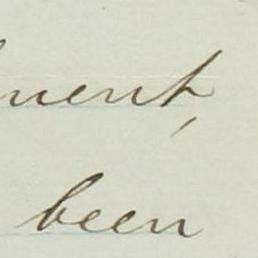 ment,
been